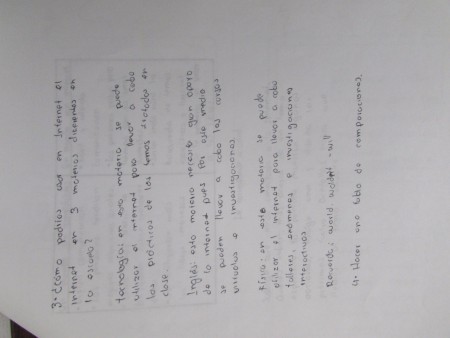 3- ¿Cómo podrías usar en Internet el
internet en 3 materias diferentes en
tu estudio?
Tecnología: en esta materia se puede
utilizar el internet para llevar a cabo
las prácticas de los temas tratados en
clase.
Inglés: esta materia necesita gran apoyo
de la internet pues por este medio
se pueden llevar a cabo los cursos
virtuales e investigaciones.
Física: en esta materia se puede
utilizar el internet para llevar a cabo
talleres, exámenes e investigaciones
interactivas
world - will
4. Hacer una tabla de comparaciones.